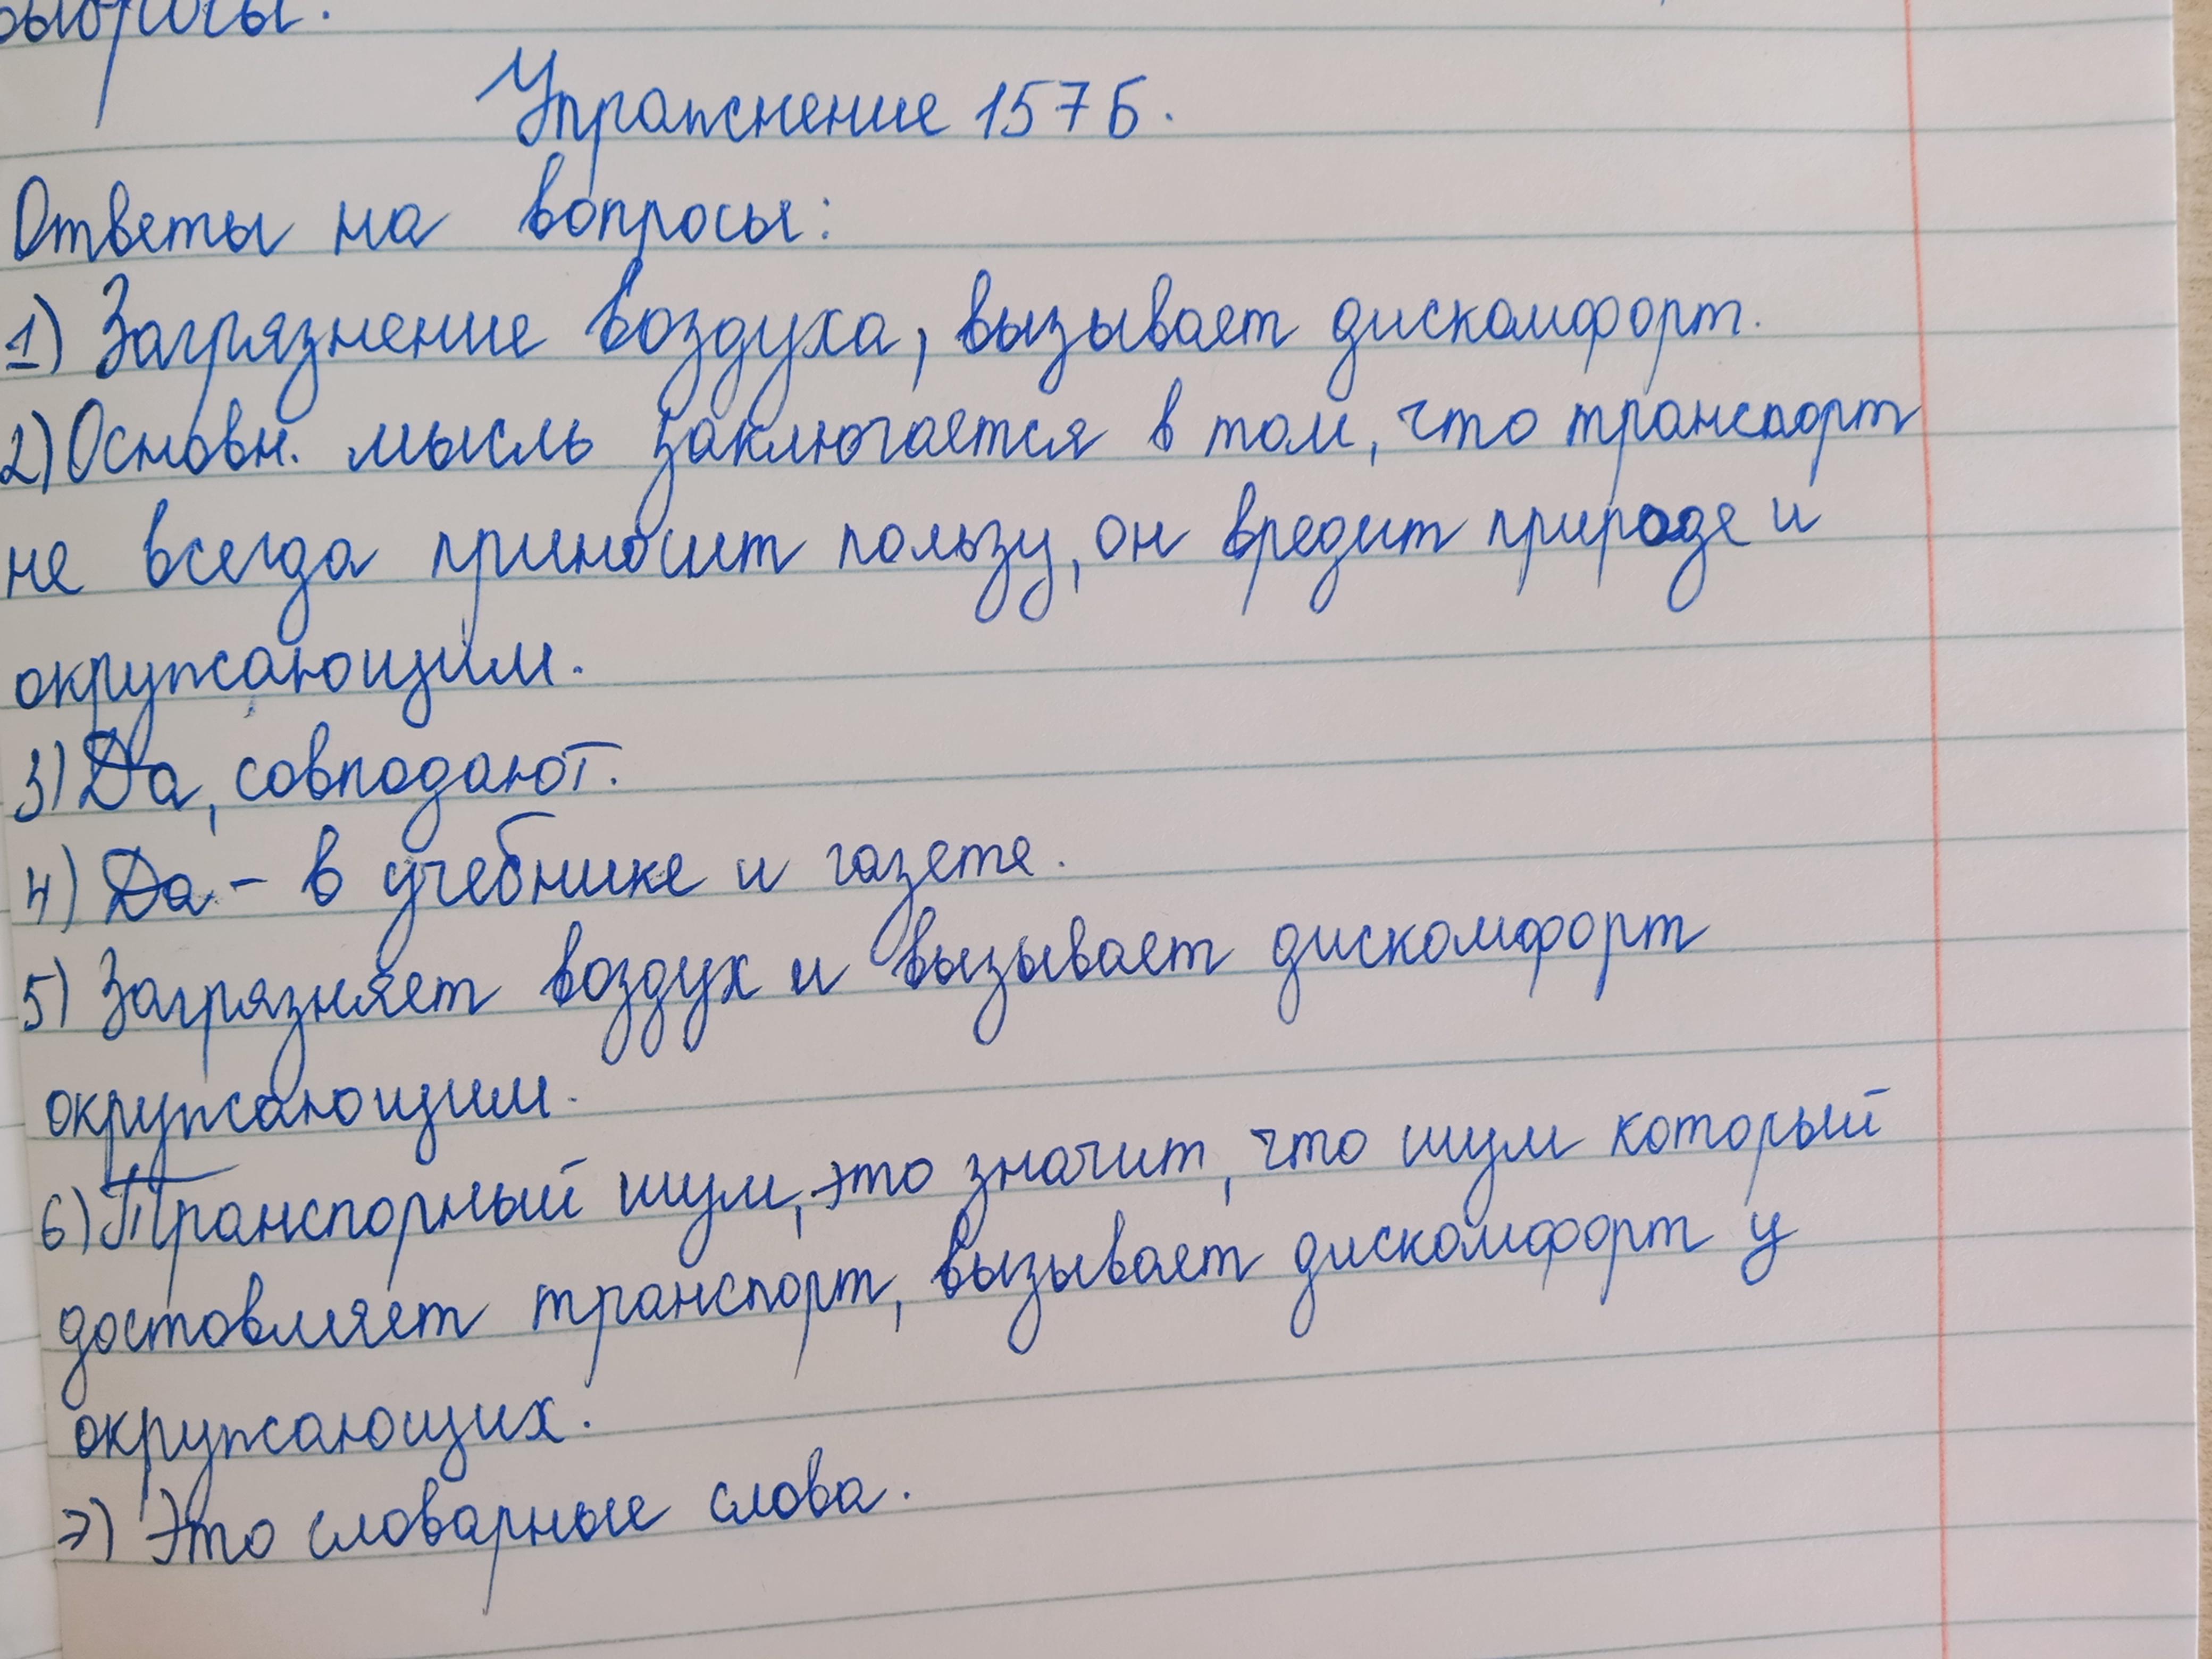 выбросы.
Упражнение 157Б.
Ответы на вопросы:
1) Загрязнение воздуха, вызывает дискомфорт.
2) Основн. мысль заключается в том, что транспорт
не всегда приносит пользу, он вредит природе и
окружающим.
3) Да, совподают.
4) Да - в учебнике и газете.
5) Загрязняет воздух и вызывает дискомфорт
окружающим.
6) Транспорный шум, это значит, что шум который
достовляет транспорт, вызывает дискомфорт у
окружающих.
7) Это словарные слова.